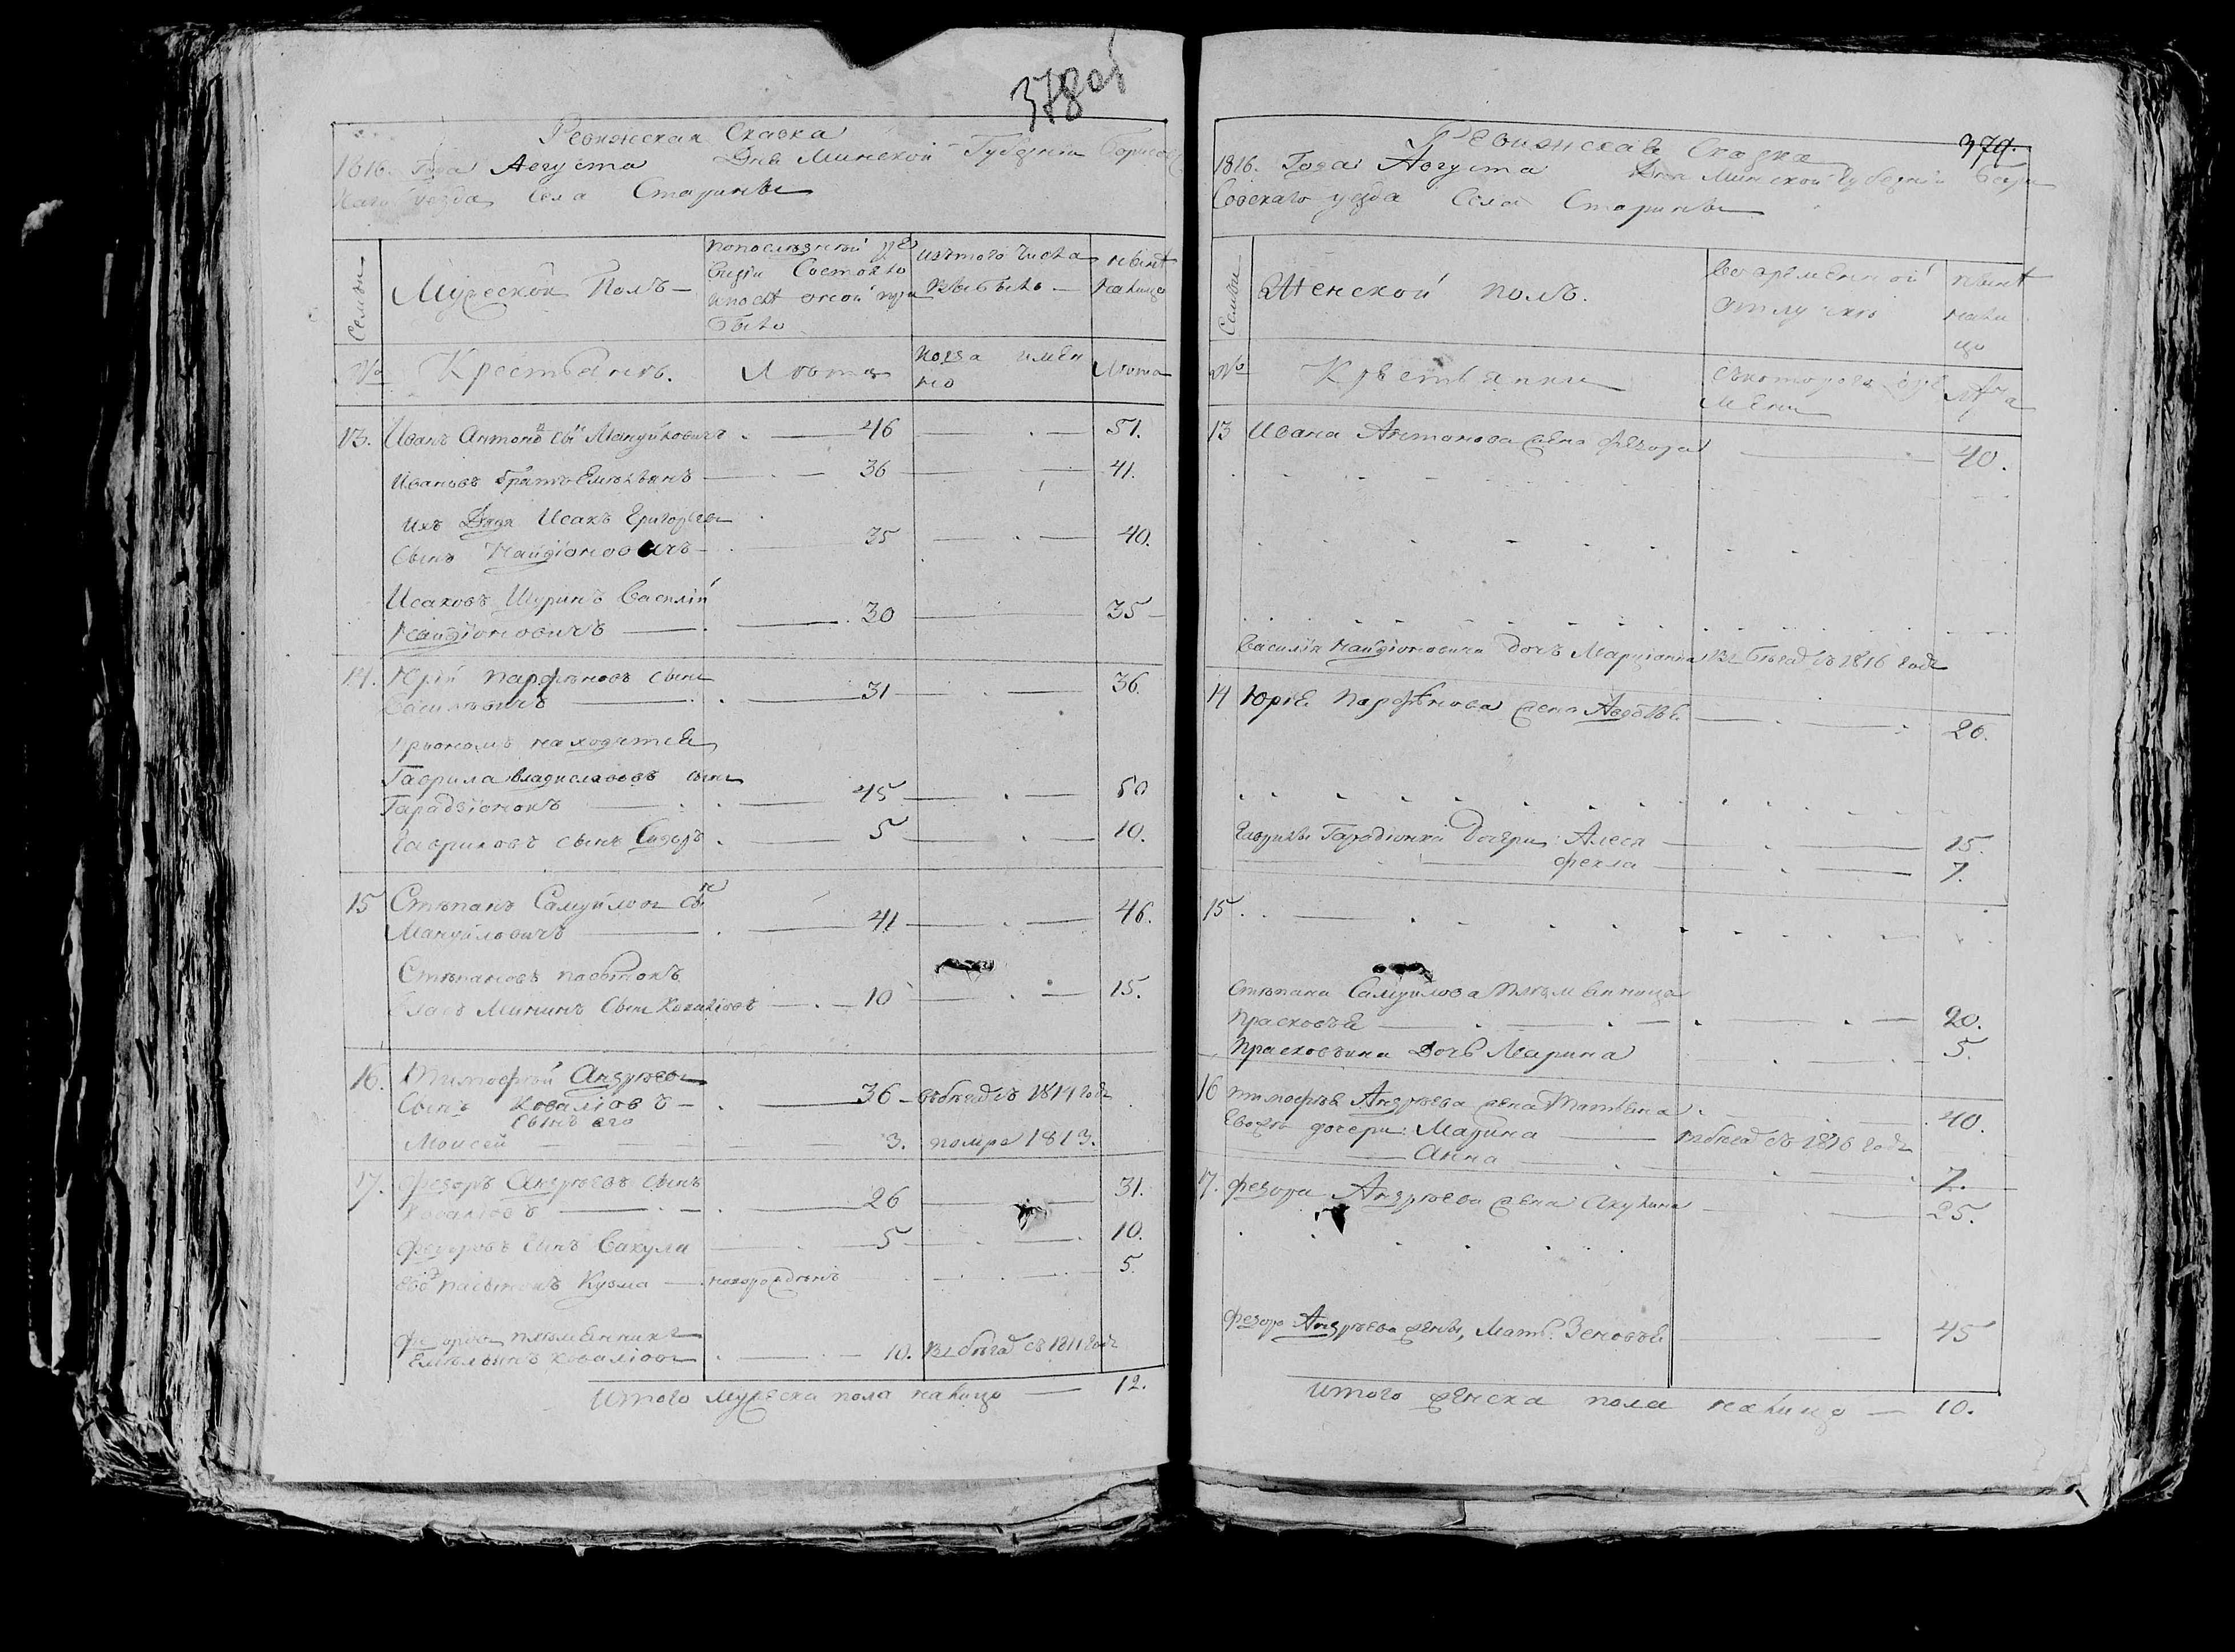 378 об
Ревижская Сказка
1816. Года Августа Дня Минской Губерніи Борисов
скаго уезда Села Старины
Семьи
Мужеской Полъ
попоследней ре
визіи Состояло
ипосле оной при
было
изтого числа
выбыло
ныне
налицо
№
Крестьянъ.
Лета
когда имен
но
Лета
13. Иванъ Антоновъ сынъ Мануйловичъ 46 51.
Ивановъ братъ Емельянъ 36 41.
Ихъ Дядя Исакъ Григорьевъ
Сынъ Найдіоновичъ 35 40.
Исаковъ Шуринъ Василій
Найдіоновичъ 30 35
14. Юрій Парфеновъ сынъ
Васильвичъ 31 36.
Приономъ находятся
Гаврила Владиславовъ сынъ
Гарадзіонокъ 45 50
Гавриловъ сынъ Сидоръ 5 10.
15 Степанъ Самуйловъ Сынъ
Мануйловичъ 41 46.
Степановъ пасынокъ
Власъ Мининъ Сынъ Коваліовъ 10 15.
16. Тимофей Андреевъ
Сынъ Коваліовъ 36 вбегахъ съ 1814 года
Сынъ его
Моисей 3. помре 1813.
17. Федоръ Андреевъ сынъ
Коваліовъ 26 31.
Федоровъ Сынъ Вакула 5 10.
Его пасынокъ Кузма новорожденъ 5.
Федора племянникъ
Емельянъ Коваліовъ 10. Въ бегахъ съ 1811 года
Итого мужеска пола налицо 12.
379.
Ревижская Сказка
1816. Года Августа Дня Минской Губерніи Бори
совскаго уезда Села Старины
Семьи
Женской полъ.
Вовременной
отлучке
ныне
нали
цо
№
Крестьянки
съкотораго вре
мени
Лета
13 Ивана Антонова жена Федора 40.
Василія Найдіоновича дочь Марціанна Въ бегах съ 1816 года
14 Юрія Парфенова жена Авдотья 26.
Гаврилы Гарадіонка Дочери: Алеся 15.
Фекла 7.
15.
Степана Самуйлова племянница
Прасковья 20.
Прасковьина Дочь Марина 5.
16 Тимофея Андреева жена Татьяна 40.
Евого дочери: Марина Вбегах съ 1816 года
Анна 7.
17. Федора Андреева жена Акулина 25.
Федора Андреева жены, Мать Зеновья 45
Итого женска пола налицо 10.